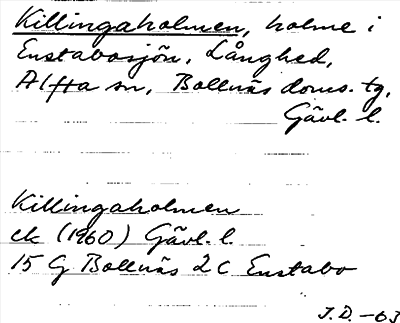 Killingaholmen, holme i
Enstabosjön, Långhed,
Alfta sn, Bollnäs doms. tg,
Gävl. l.
Killingaholmen
ek (1960) Gävl. l.
15 G Bollnäs 2 C Enstabo
J.D. -63